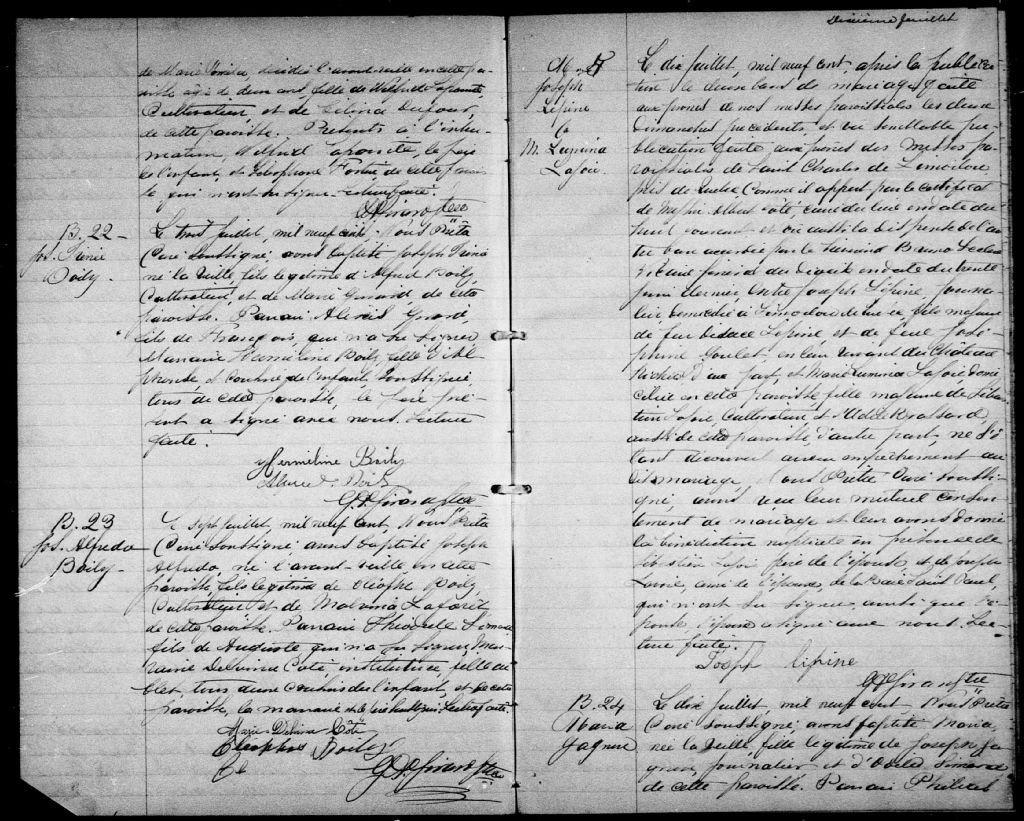 de Marie décédée l'avant-veille en cette pa-
roisse âgée de deux ans, fille de Wilfrid Lapointe,
Cultivateur, et de Dufour,
de cette paroisse. Présents à l'inhu-
mation, Wilfrid Lapointe, le père
de l'enfant, et Fortin de cette parois-
se qui n'ont su signer. Lecture faite.
G. P. Girard Ptre
B. 22
Jos. Boily
Le trois Juillet, mil neuf cent Nous Prêtre
Curé Soussigné, avons baptisé Joseph
né la veille, fils légitime d'Alfred Boily,
Cultivateur, et de Marie Girard, de cette
paroisse. Parrain Alexis Girard,
fils de François, qui n'a su signer
Marraine Herméline Boily, fille d'Al-
phonse, et cousine de l'enfant soussignée
tous de cette paroisse, le père pré-
sent a signé avec nous. Lecture
faite.
Herméline Boily
Alfred Boily
G. P. Girard Ptre
B. 23
Jos. Alfreda
Boily
Le sept Juillet, mil neuf cent Nous Prêtre
Curé Soussigné avons baptisé Joseph
Alfreda, né l'avant-veille en cette
paroisse, fils légitime de Cléophe Boily
Cultivateur et de Malvina Laforêt
de cette paroisse. Parrain Théodule
fils de Auguste qui n'a su signer, Mar-
raine Delvina Côté, institutrice, fille de
tous deux cousins de l'enfant, et de cette
paroisse, la marraine et le père Lecture faite.
Marie Delvina Côté
Cléophas Boily
G. P. Girard Ptre
Dixième feuillet
M. 7
Joseph
Lépine
&
M. Lumina
Lafoie
Le dix Juillet, mil neuf cent, après la publica-
tion de deux bans de mariage faite
aux prônes de nos messes paroissiales les deux
Dimanches précédents, et vu semblable pu-
blication faite aux prônes des messes pa-
roissiales de Saint Charles de Limoilou
près de Québec comme il appert par le certificat
de Messire Côté, curé du lieu en date du
huit courant et vu aussi la dispense de l'au-
tre ban accordée par le Révérend Bruno Leclerc
du diocèse en date du trente
juin dernier, entre Joseph Lépine, journa-
lier domicilié à Limoilou fils majeur
de feu Lépine et de feue José-
phine Goulet, en leur vivant du Château
Richer d'une part, et Marie Lumina Lafoie domi-
ciliée en cette paroisse fille majeure de Sébas-
tien Lafoie Cultivateur et d'Adèle Brassard,
aussi de cette paroisse, d'autre part, ne s'é-
tant découvert aucun empêchement au
dit mariage, Nous Prêtre Curé soussi-
gné, avons reçu leur mutuel consen-
tement de mariage et leur avons donné
la bénédiction nuptiale en présence de
Sébastien Lafoie père de l'épouse, et de Joseph
Lavoie, ami de l'époux, de la Baie Saint Paul,
qui n'ont su signer, ainsi que l'é-
pouse, l'époux a signé avec nous. Lec-
ture faite.
Joseph Lépine
G. P. Girard Ptre
B. 24
Maria
Gagnon
Le dix Juillet, mil neuf cent Nous Prêtre
Curé Soussigné, avons baptisé Maria
née la veille, fille légitime de Joseph Ga-
gnon, journalier et d'Odile Simard
de cette paroisse. Parrain